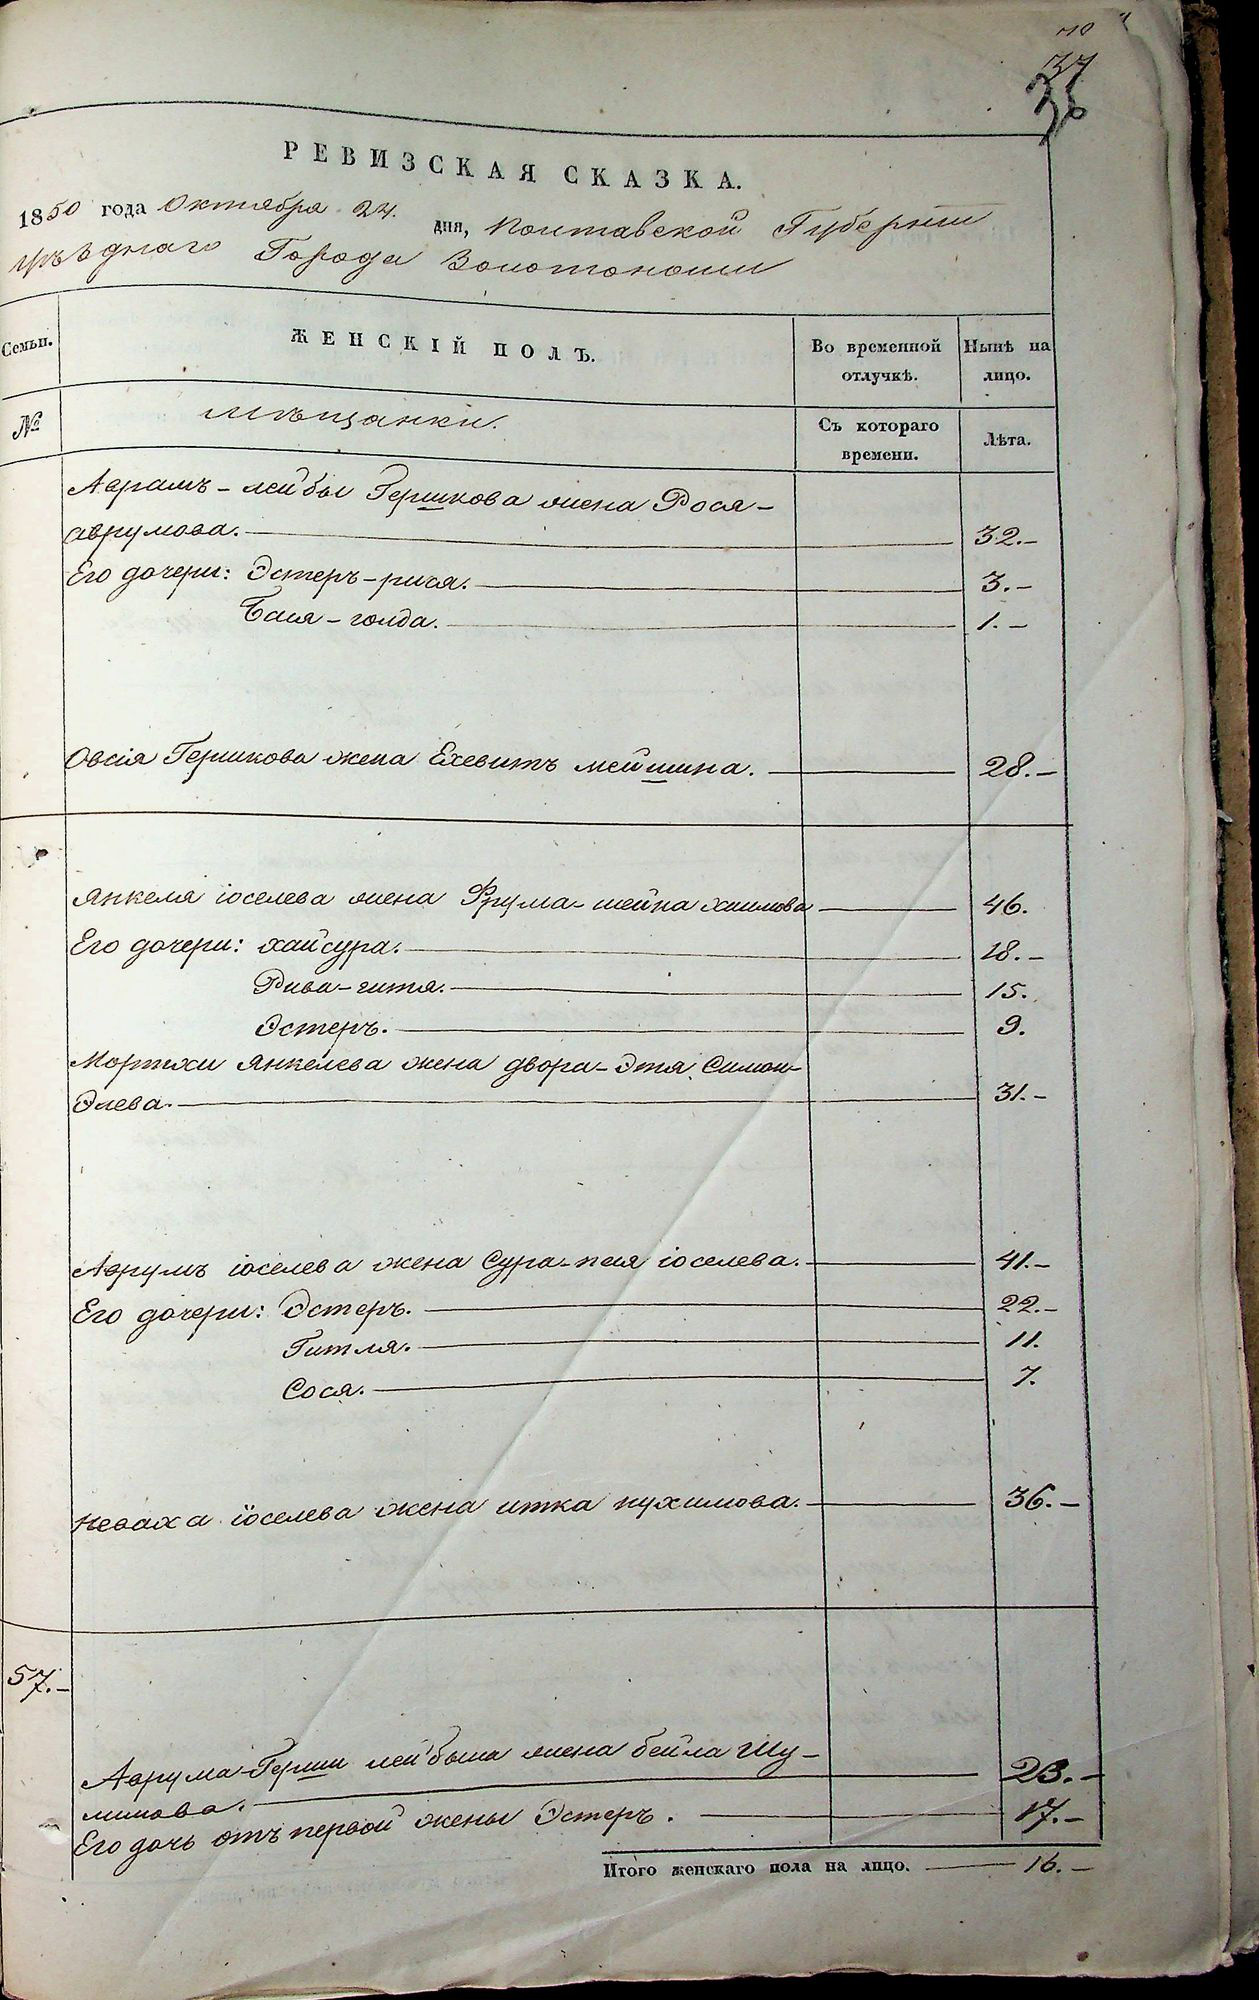 70
37
36
РЕВИЗСКАЯ СКАЗКА.
1850 года Октября 24. дня, Полтавской Губернiи
уѣзднаго Города Золотоноши
Семьи.
ЖЕНСКIЙ ПОЛЪ.
Во временной отлучкѣ.
Нынѣ на лицо.
№
Мѣщанки.
Съ котораго времени.
Лѣта.
Аврамъ-лейбы Гершкова жена Рося-
аврумова. 32.-
Его дочери: Эстеръ-рися. 3.-
Бася-голда. 1.-
Овсiя Гершкова жена Ехевитъ мейшина. 28.-
Янкеля iоселева жена Фрума-шейна хаимова 46.
Его дочери: хайсура. 18.-
Рива-гитя. 15.
Эстеръ. 9.
Мортхи Янкелева жена двора-Этя Симон-
Элева. 31.-
Аврумъ iоселева жена Сура-пея iоселева. 41.-
Его дочери: Эстеръ. 22.-
Гитля. 11.
Сося. 7.
Неваха iоселева жена итка нухимова. 36.-
57.-
Аврума-Герши лейбына жена бейла Шу-
лимова. 23.-
Его дочь отъ первой жены Эстеръ. 17.-
Итого женскаго пола на лицо. 16.-